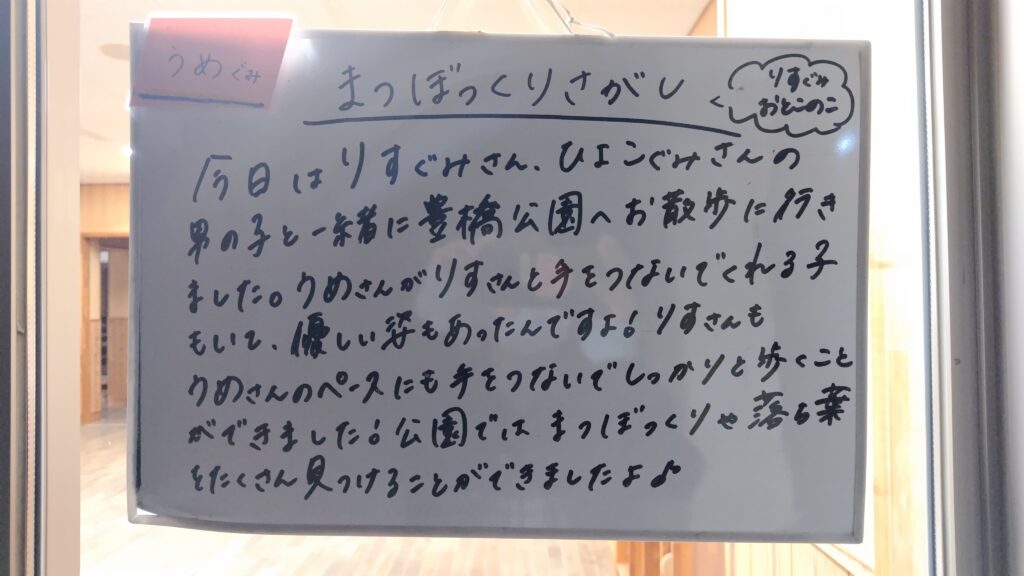 うめぐみ
まつぼっくりさがし
りすぐみ
おとこのこ
今日はりすぐみさん、ひよこぐみさんの
男の子と一緒に豊橋公園へお散歩に行き
ました。うめさんがりすさんと手をつないでくれる子
もいて、優しい姿もあったんですよ！りすさんも
うめさんのペースにも手をつないでしっかりと歩くこと
ができました！公園ではまつぼっくりや落ち葉
をたくさん見つけることができましたよ♪